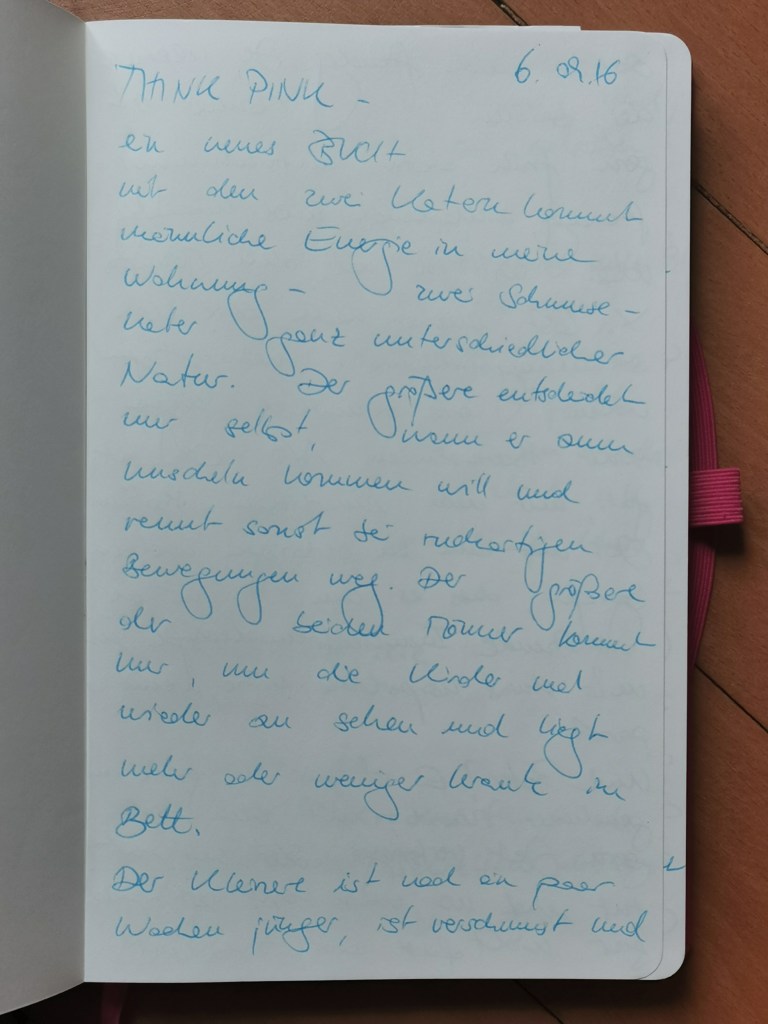 THINK PINK - 6.09.16
ein neues BUCH
mit den zwei Katern kommt
männliche Energie in meine
Wohnung - zwei Schmuse-
kater ganz unterschiedlicher
Natur. Der größere entscheidet
nur selbst, wann er zum
kuscheln kommen will und
rennt sonst bei ruckartigen
Bewegungen weg. Der größere
der beiden Männer kommt
nur, um die Kinder mal
wieder zu sehen und liegt
mehr oder weniger krank im
Bett.
Der Kleinere ist noch ein paar
Wochen jünger, ist verschmust und